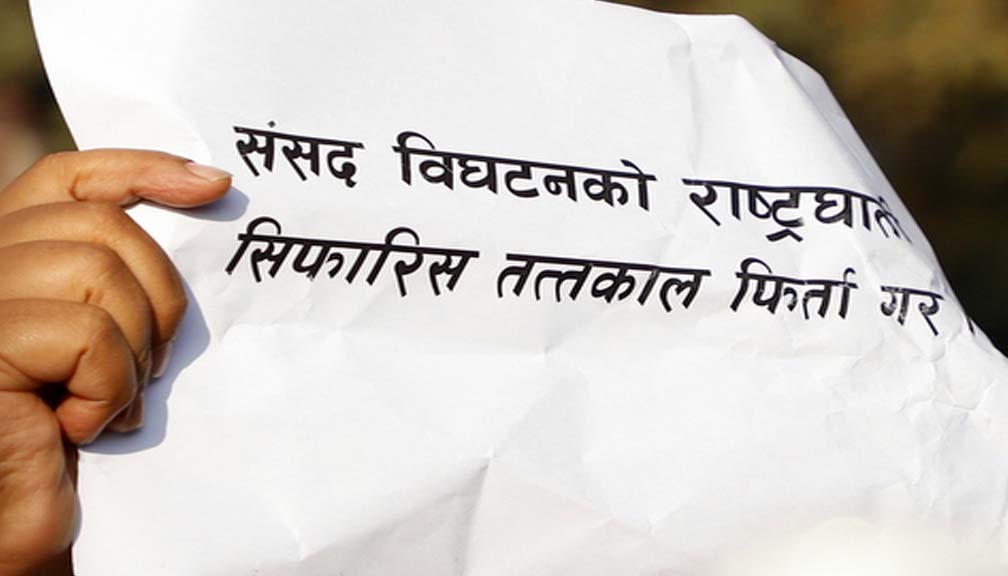 संसद विघटनको राष्ट्रघाती
सिफारिस तत्तकाल फिर्ता गर